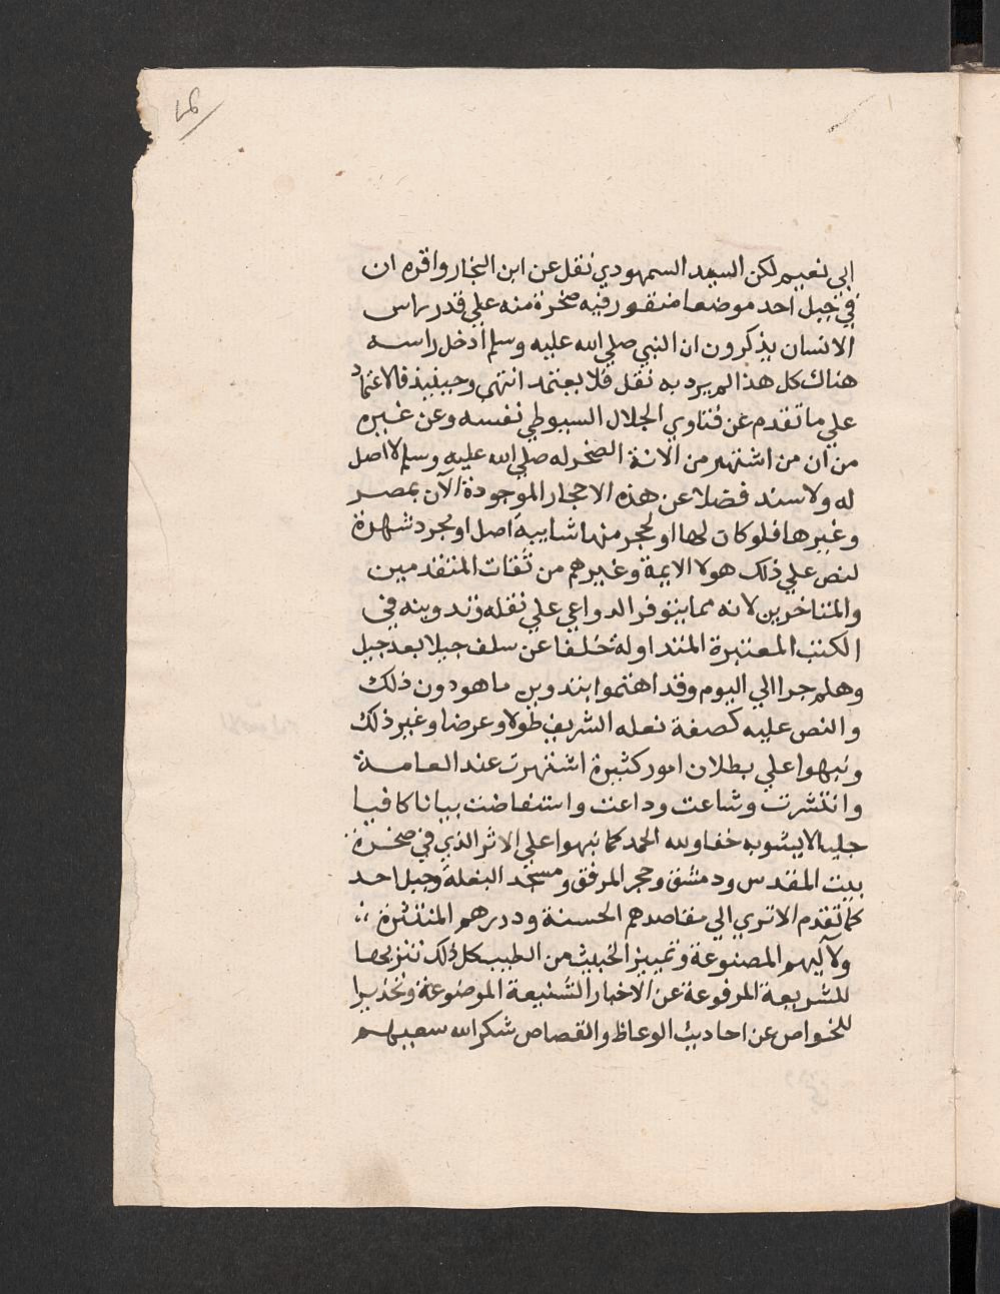 ابي نعيم لكن السيد السمهودي نقل عن ابن النجار واقره ان
في جبل احد موضعا منقورفيه صخرة منه علي قدر راس
الانسان يذكرون ان النبي صلي الله عليه وسلم ادخل راسه
هناك كل هذا لم يرد به نقل فلا يعتمد انتهي وحينيذ فالاعتماد
علي ما تقدم عن فتاوي الجلال السيوطي نفسه وعن غيره
من ان من اشتهر من الانة الصخر له صلي الله عليه وسلم لا اصل
له ولا سند فضلا عن هذه الاحجار الموجودة الآن بمصر
وغيرها فلو كان لها او لحجر منها شايبة اصل او مجرد شهرة
لنص علي ذلك هولا الايمة وغيرهم من ثقات المتقدمين
والمتاخرين لانه مما يتوفر الدواعي علي نقله وتدوينه في
الكتب المعتبرة المتداولة خلفا عن سلف جيلا بعد جيل
وهلم جرا الي اليوم وقد اهتموا بتدوين ما هو دون ذلك
والنص عليه كصفة نعله الشريف طولا وعرضا وغير ذلك
ونبهوا علي بطلان امور كثيرة اشتهرت عند العامة
وانتشرت وشاعت وذاعت واستفاضت بيانا كافيا
جليا لا يشوبه خفا ولله الحمد كما نبهوا علي الاثر الذي في صخرة
بيت المقدس ودمشق وحجر المرفق ومسجد البغلة وجبل احد
كما تقدم الا تري الي مقاصدهم الحسنة ودررهم المنتثرة
ولآليهم المصنوعة وتمييز الخبيث من الطيب كل ذلك تنزيها
للشريعة المرفوعة عن الاخبار الشنيعة الموضوعة وتحذيرا
للخواص عن احاديث الوعاظ والقصاص شكر الله سعيهم